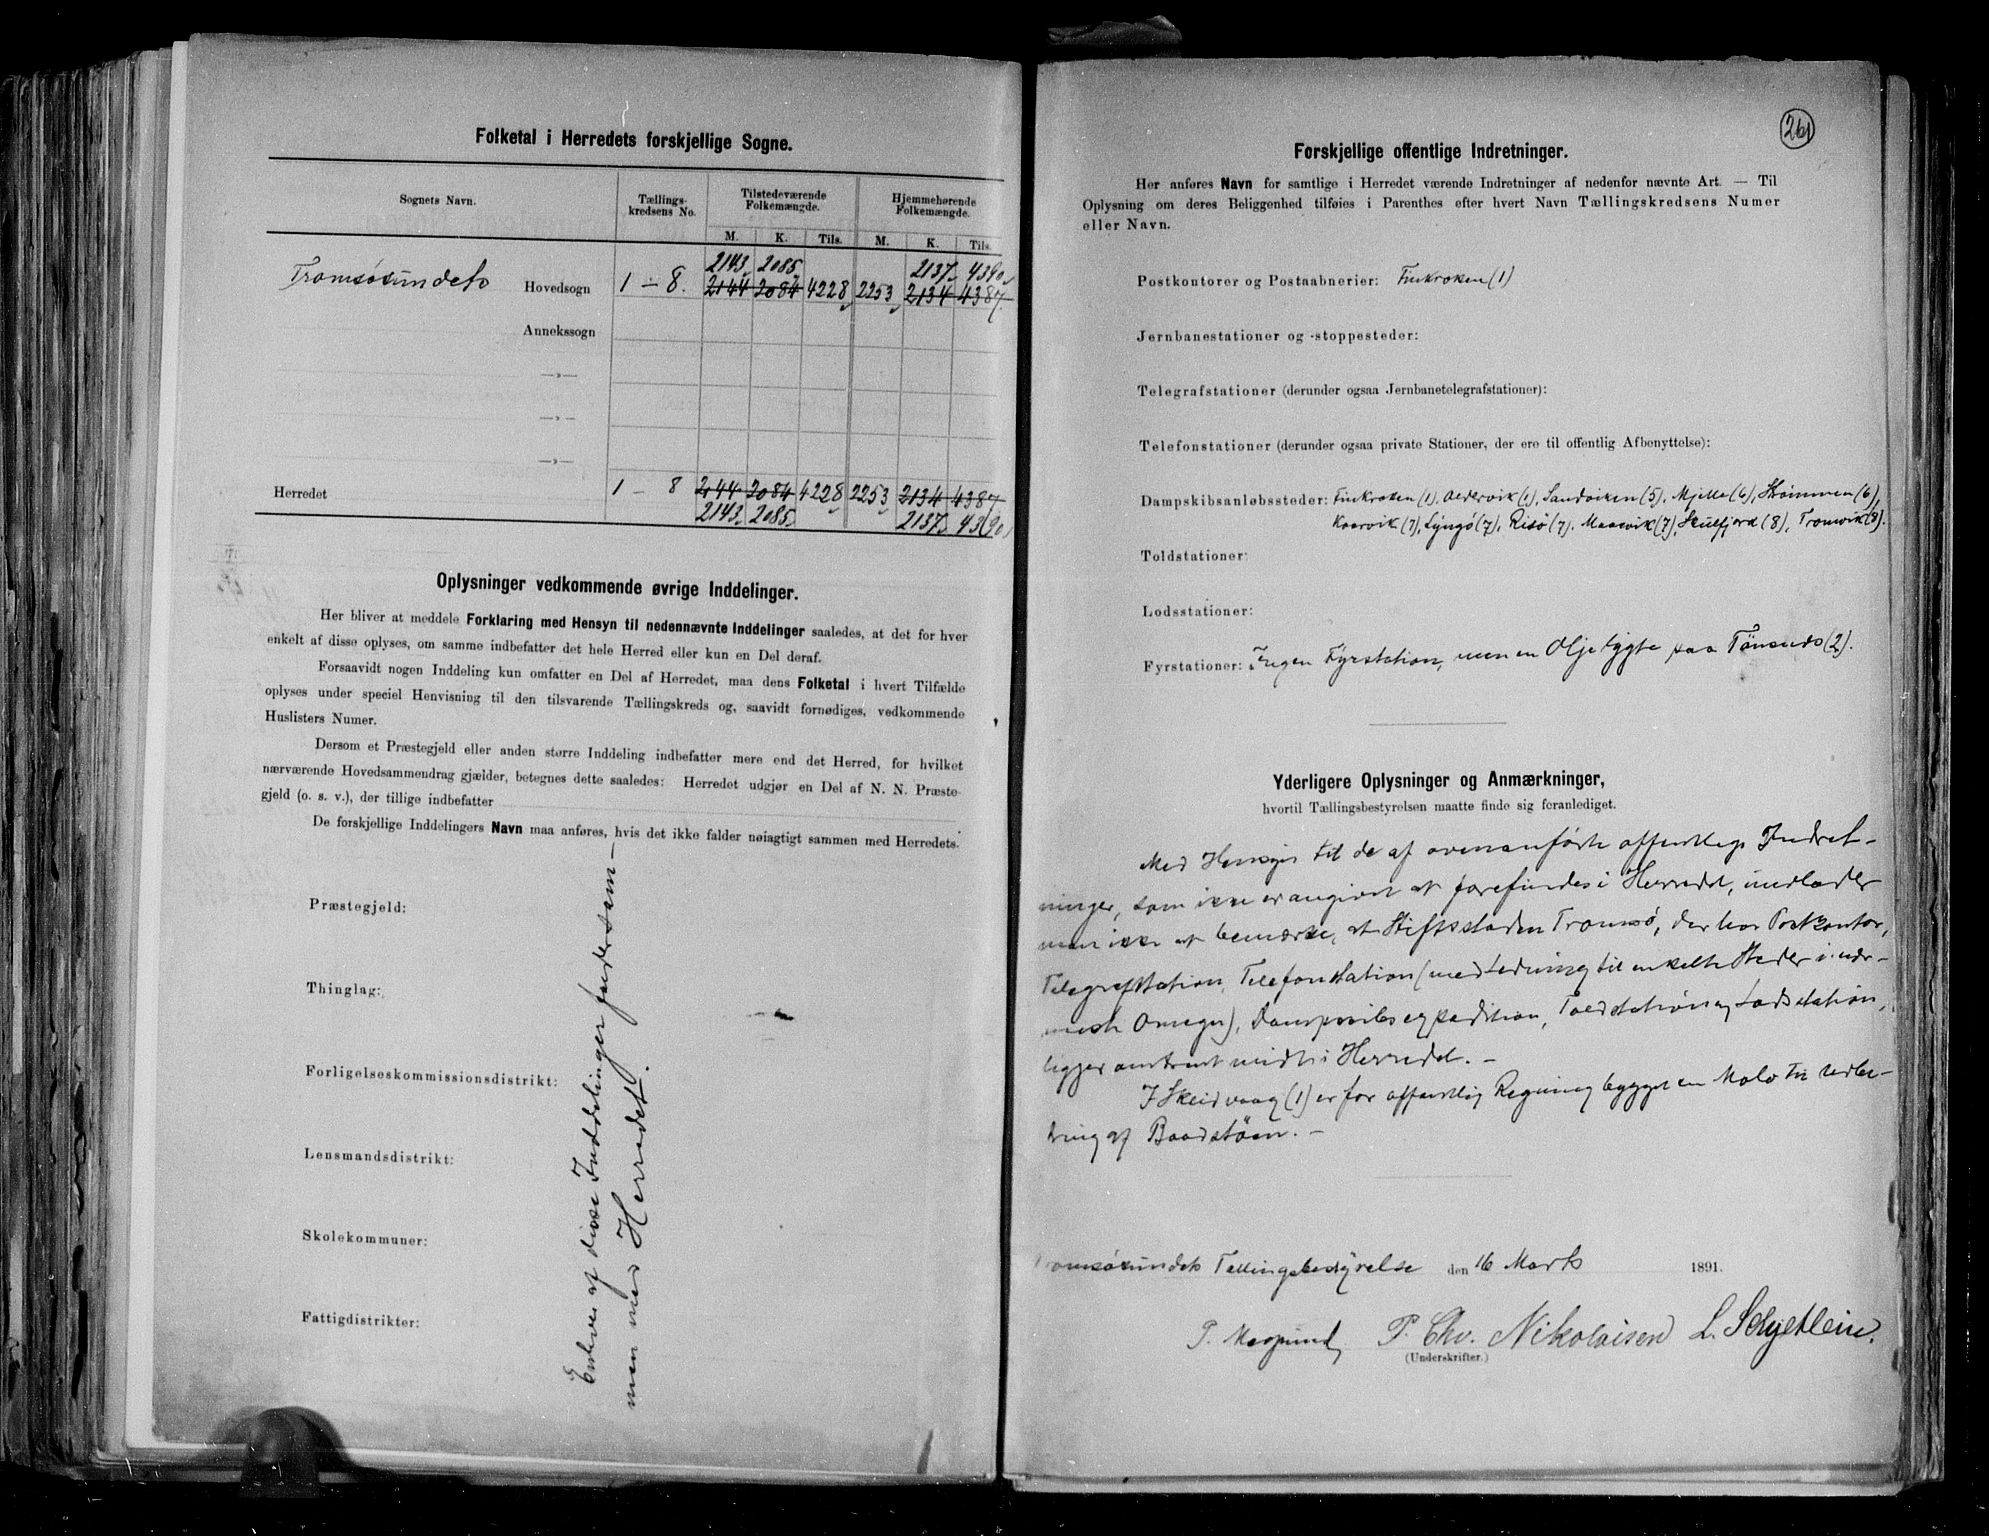 Folketal i Herredets forskjellige Sogne.
Sognets Navn.
Tællings-
kredsens No.
Tilstedeværende
Folkemængde.
Hjemmehørende
Folkemængde.
M. K. Tils. M. K. Tils.
2143 2085 2137 4390
Tromsøsundets Hovedsogn 1 – 8. 2144 2084 4228 2253 2134 4387
Annekssogn
—»—
—»—
—»—
Herredet 1 – 8 2144 2084 4228 2253 2134 4387
2143 2085 2137 4390
Oplysninger vedkommende øvrige Inddelinger.
Her bliver at meddele Forklaring med Hensyn til nedennævnte Inddelinger saaledes, at det for hver
enkelt af disse oplyses, om samme indbefatter det hele Herred eller kun en Del deraf.
Forsaavidt nogen Inddeling kun omfatter en Del af Herredet, maa dens Folketal i hvert Tilfælde
oplyses under speciel Henvisning til den tilsvarende Tællingskreds og, saavidt fornødiges, vedkommende
Huslisters Numer.
Dersom et Præstegjeld eller anden større Inddeling indbefatter mere end det Herred, for hvilket
nærværende Hovedsammendrag gjælder, betegnes dette saaledes: Herredet udgjør en Del af N. N. Præste-
gjeld (o. s. v.), der tillige indbefatter
De forskjellige Inddelingers Navn maa anføres, hvis det ikke falder nøiagtigt sammen med Herredets.
Præstegjeld:
Thinglag:
Forligelseskommissionsdistrikt:
Lensmandsdistrikt:
Skolekommuner:
Fattigdistrikter:
Enhver af disse Inddelinger falder sam-
men med Herredet.
261
Forskjellige offentlige Indretninger.
Her anføres Navn for samtlige i Herredet værende Indretninger af nedenfor nævnte Art. — Til
Oplysning om deres Beliggenhed tilføies i Parenthes efter hvert Navn Tællingskredsens Numer
eller Navn.
Postkontorer og Postaabnerier: Finkroken (1)
Jernbanestationer og -stoppesteder:
Telegrafstationer (derunder ogsaa Jernbanetelegrafstationer):
Telefonstationer (derunder ogsaa private Stationer, der ere til offentlig Afbenyttelse):
Dampskibsanløbssteder: Finkroken (1), Oldervik (1), Sandviken (5), Mjelle (6), Strømmen (6),
Kaarvik (7), Lyngø (7), Risø (7). Maasvik (7), Skulfjord (8), Tromvik (8).
Toldstationer:
Lodsstationer:
Fyrstationer: Ingen Fyrstation, men en Oljelygte paa Tønsnds (2).
Yderligere Oplysninger og Anmærkninger,
hvortil Tællingsbestyrelsen maatte finde sig foranlediget.
Med Hensyn til de af ovenanførte offentlige Indret-
ninger, som ikke er angivet at forefindes i Herredet, undlader
man ikke at bemærke, at Stiftsstaden Tromsø, der har Postkontor,
Telegrafstation, Telefonstation (med Ledning til enkelte Steder i nær-
meste Omegn), Dampskibsexpedition, Toldstation og Lodsstation,
ligger omtrent midt i Herredet. –
I Skeidvaag (1) er for offentlig Regning bygget en Molo til Udbe-
dring af Baadstøen. –
Tromsøsundets Tællingsbestyrelse den 16 Marts 1891.
P. Chr. Nikolaisen L. Schjetlein.
(Underskrifter.)